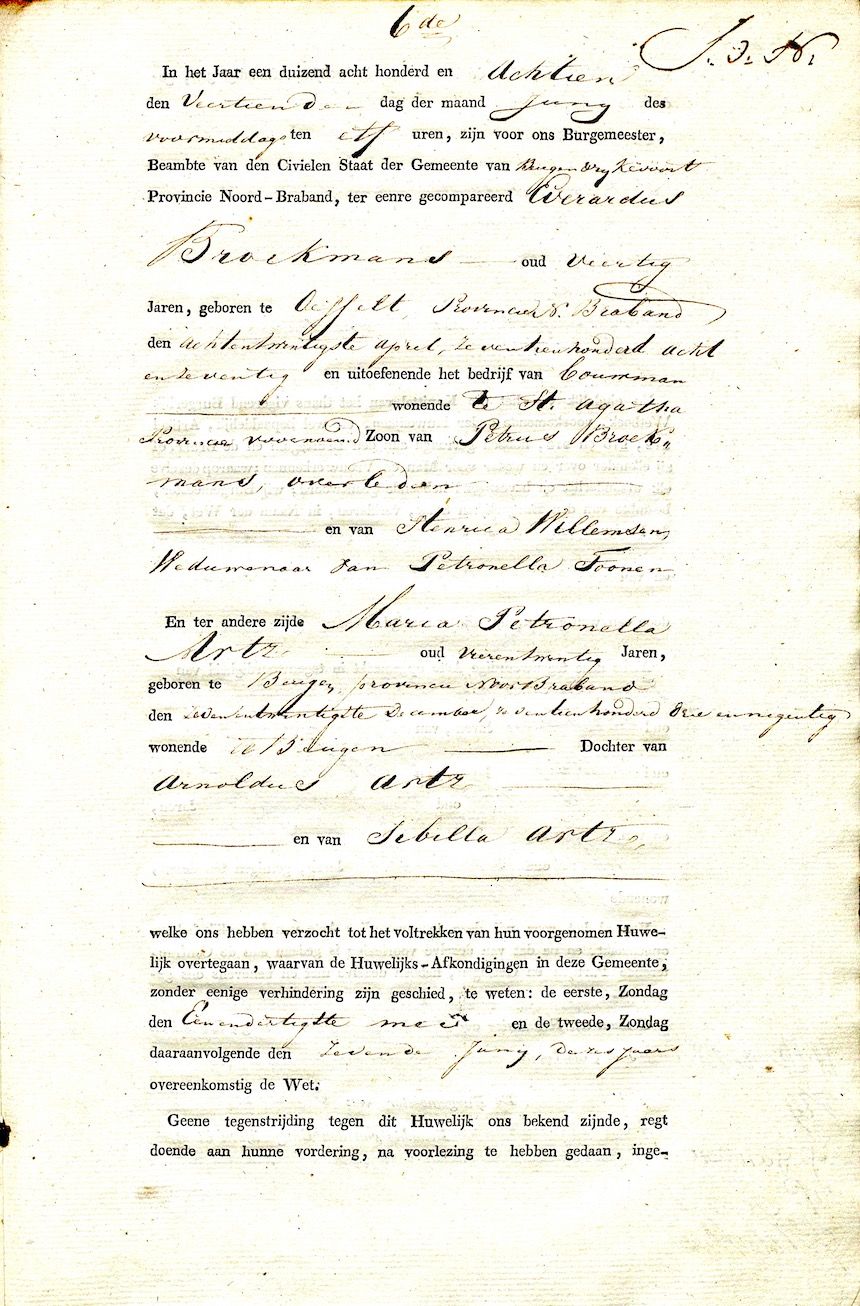 6de
J. D. N.
In het Jaar een duizend acht honderd en Achtien
den Veertienden dag der maand Juny des
voormiddags ten elf uren, zijn voor ons Burgemeester,
Beambte van den Civielen Staat der Gemeente van Beugen & Rykevoort
Provincie Noord-Braband, ter eenre gecompareerd Everardus
Broekmans oud veertig
Jaren, geboren te Oeffelt, Provincie N. Braband
den achtentwintigste april, zeventienhonderd acht
en zeventig en uitoefenende het bedrijf van Bouwman
wonende te St. Agatha
Provincie voornoemd Zoon van Petrus Broek„
mans, overleden
en van Henrica Willemsen,
Weduwenaar van Petronella Toonen
En ter andere zijde Maria Petronella
Artz oud vierentwintig Jaren,
geboren te Beugen, provincie Noor Braband
den zevenentwintigste December, zeventienhonderd drie ennegentig
wonende te Beugen Dochter van
Arnoldus Artz
en van Sebilla Artz,
welke ons hebben verzocht tot het voltrekken van hun voorgenomen Huwe-
lijk overtegaan, waarvan de Huwelijks-Afkondigingen in deze Gemeente,
zonder eenige verhindering zijn geschied, te weten: de eerste, Zondag
den Eenendertigste mei en de tweede, Zondag
daaraanvolgende den zevende Juny, dezes jaars
overeenkomstig de Wet.
Geene tegenstrijding tegen dit Huwelijk ons bekend zijnde, regt
doende aan hunne vordering, na voorlezing te hebben gedaan, inge-